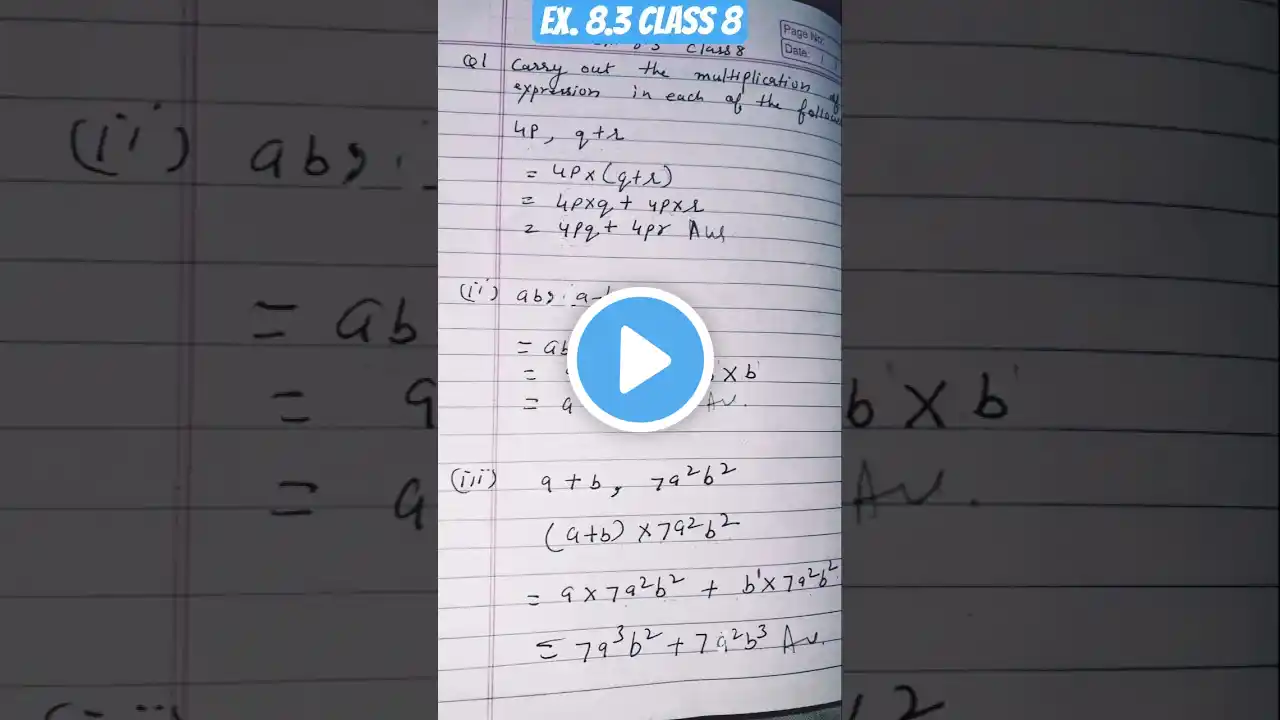 EX. 8.3 CLASS 8
Page No:
Date:
Class 8
Q1 Carry out the multiplication of
expression in each of the
4P, q+r
= 4P×(q+r)
= 4P×q + 4P×r
= 4Pq + 4Pr Ans
(ii) ab, a-b
= ab
= a b¹×b¹
= a
(iii) a+b, 7a²b²
(a+b) ×7a²b²
= a×7a²b² + b¹×7a²b²
= 7a³b² + 7a²b³